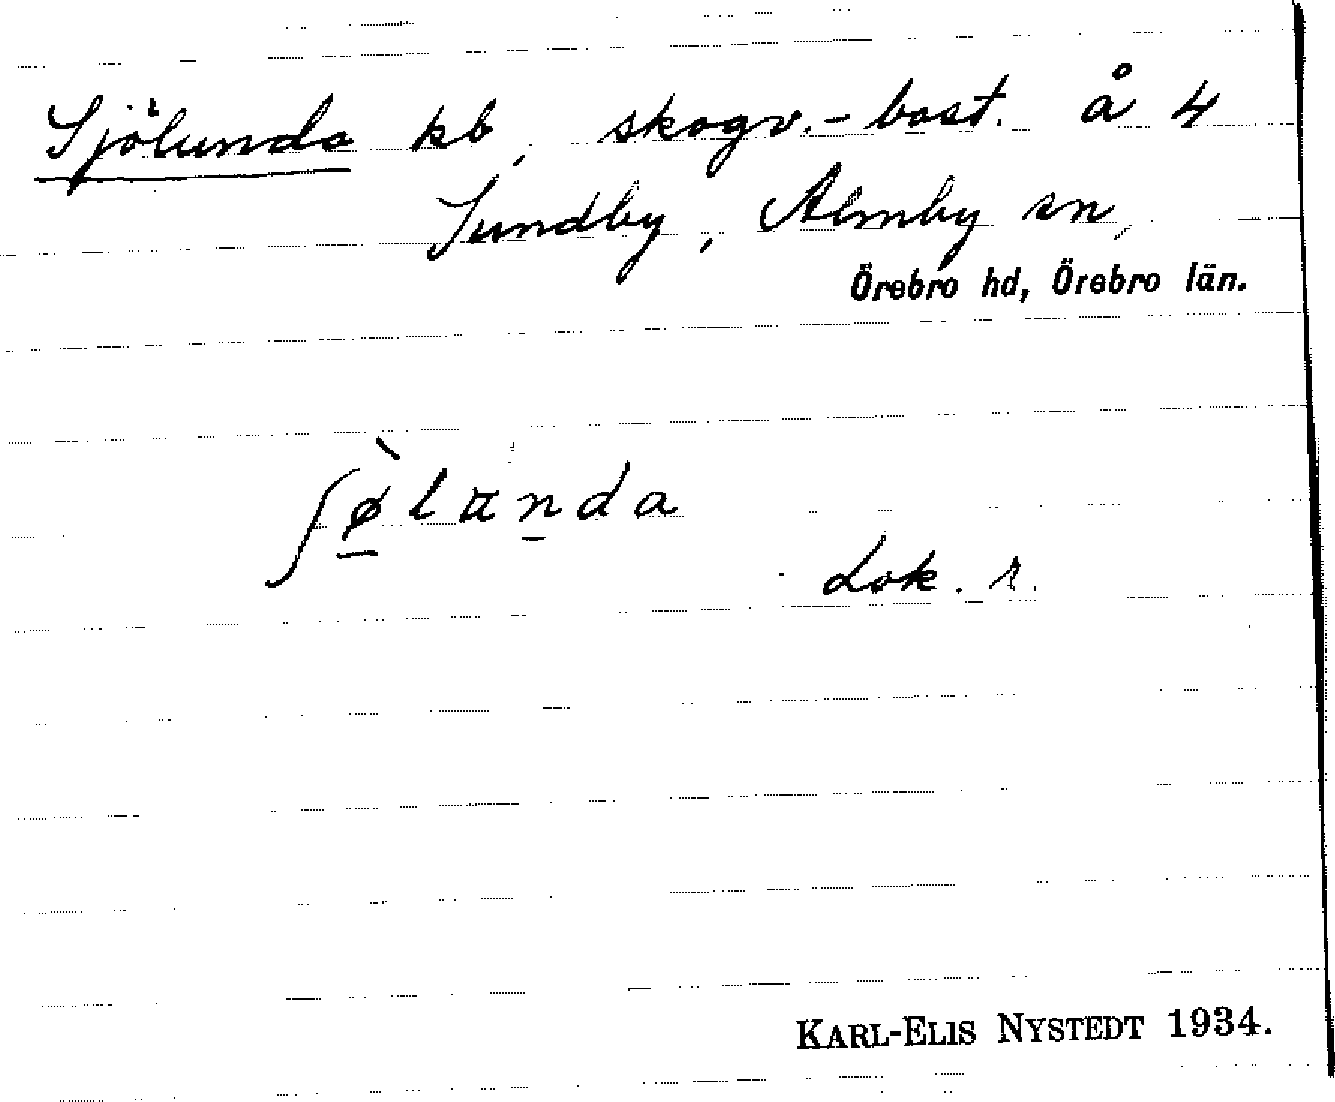 Sjölunda kb, skogv.-bost. å 4
Sundby, Almby sn,
Örebro hd, Örebro län.
ʃø̀lunda
Lok. r.
KARL-ELIS NYSTEDT 1934.